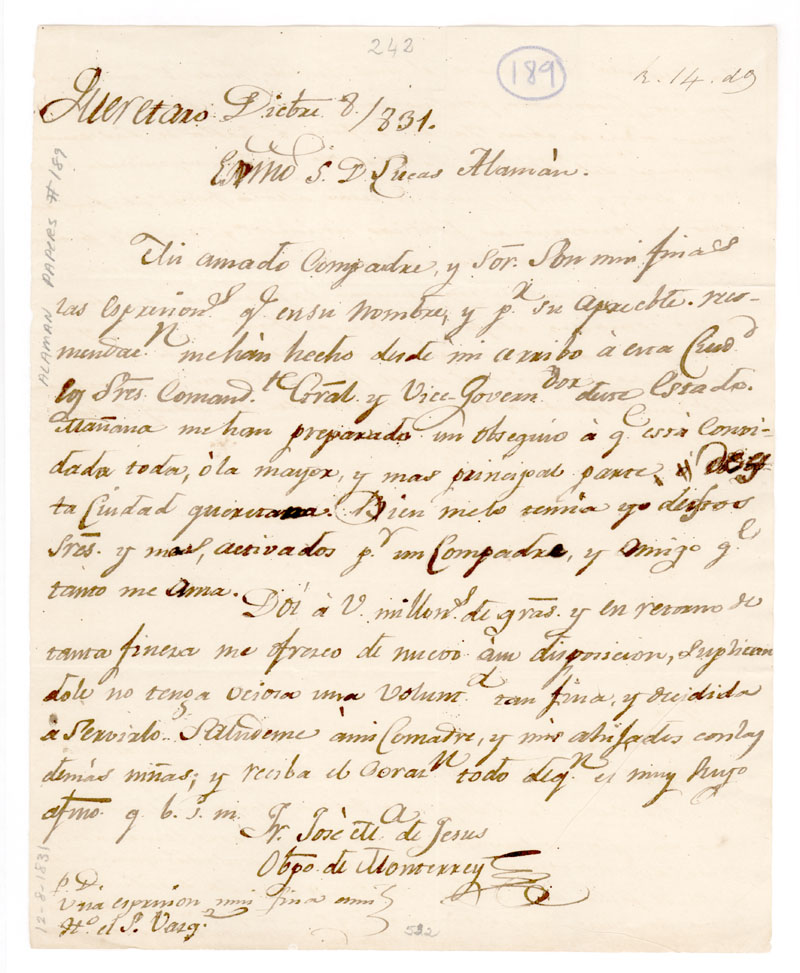 242
189
R. 14. d9
Queretaro Dicbre. 8./831.
Exmo S. D. Lucas Alamán.
Mi amado Compadre, y Sor. Son mui finas
las espresion.s q.e en su nombre, y p.r su aprecble. reco-
mendac.n me hán hecho desde mi arribo à esta Ciud.d
los Sres. Comand.te Gral. y Vice-Govern.dor deste Estado.
Mañana me han preparado un obsequio à q.e està convi-
dada toda, ò la mayor, y mas principal parte de es
ta Ciudad queretana. Bien me lo temia yo destos
Sres. y mas, activados p.r un Compadre, y amigo q.e
tanto me ama.
Doi à V. millon.s de gras. y en retorno de
tanta finesa me ofresco de nuevo à su disposicion, suplican
dole no tenga ociosa una volunt.d tan fina, y decidida
à servirlo. Saludeme à mi Comadre, y mis ahijados con las
demàs niñas; y reciba el coraz.n todo de q.n es muy suyo
afmo. q. b. s. m.
Fr. Josè M.a de Jesus
Obpo. de Monterrey
P. D.
Una espresion mui fina
el P. Varg.s
532
ALAMAN PAPERS # 189
12-8-1831